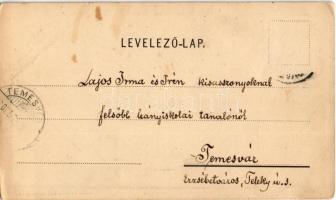 LEVELEZŐ-LAP.
Lajos Irma és Irén kisasszonyoknak
felsőbb leányiskolai tanulónői
Temesvár
Erzsébetváros, Teleky u. s.
TEMES